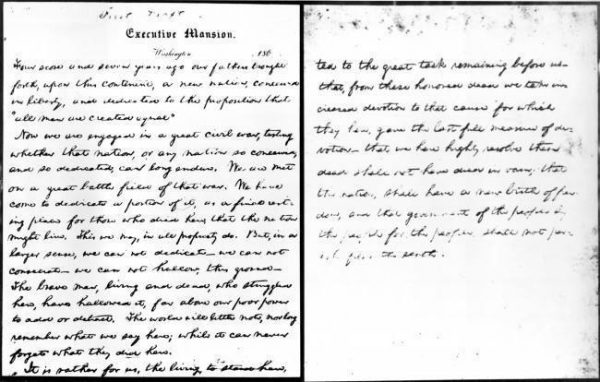 First Draft.
Executive Mansion,
Washington, , 186 .
Four score and seven years ago our fathers brought
forth, upon this continent, a new nation, conceived
in liberty, and dedicated to the proposition that
"all men are created equal"
Now we are engaged in a great civil war, testing
whether that nation, or any nation so conceived,
and so dedicated, can long endure. We are met
on a great battle field of that war. We have
come to dedicate a portion of it, as a final rest-
ing place for those who died here, that the nation
might live. This we may, in all propriety do. But, in a
larger sense, we can not dedicate — we can not
consecrate — we can not hallow, this ground —
The brave men, living and dead, who struggled
here, have hallowed it, far above our poor power
to add or detract. The world will little note, nor long
remember what we say here; while it can never
forget what they did here.
It is rather for us, the living, to stand here,
ted to the great task remaining before us —
that, from these honored dead we take in-
creased devotion to that cause for which
they here, gave the last full measure of de-
votion — that we here highly resolve these
dead shall not have died in vain; that
the nation, shall have a new birth of free-
dom, and that government of the people by
the people for the people, shall not per-
ish from the earth.